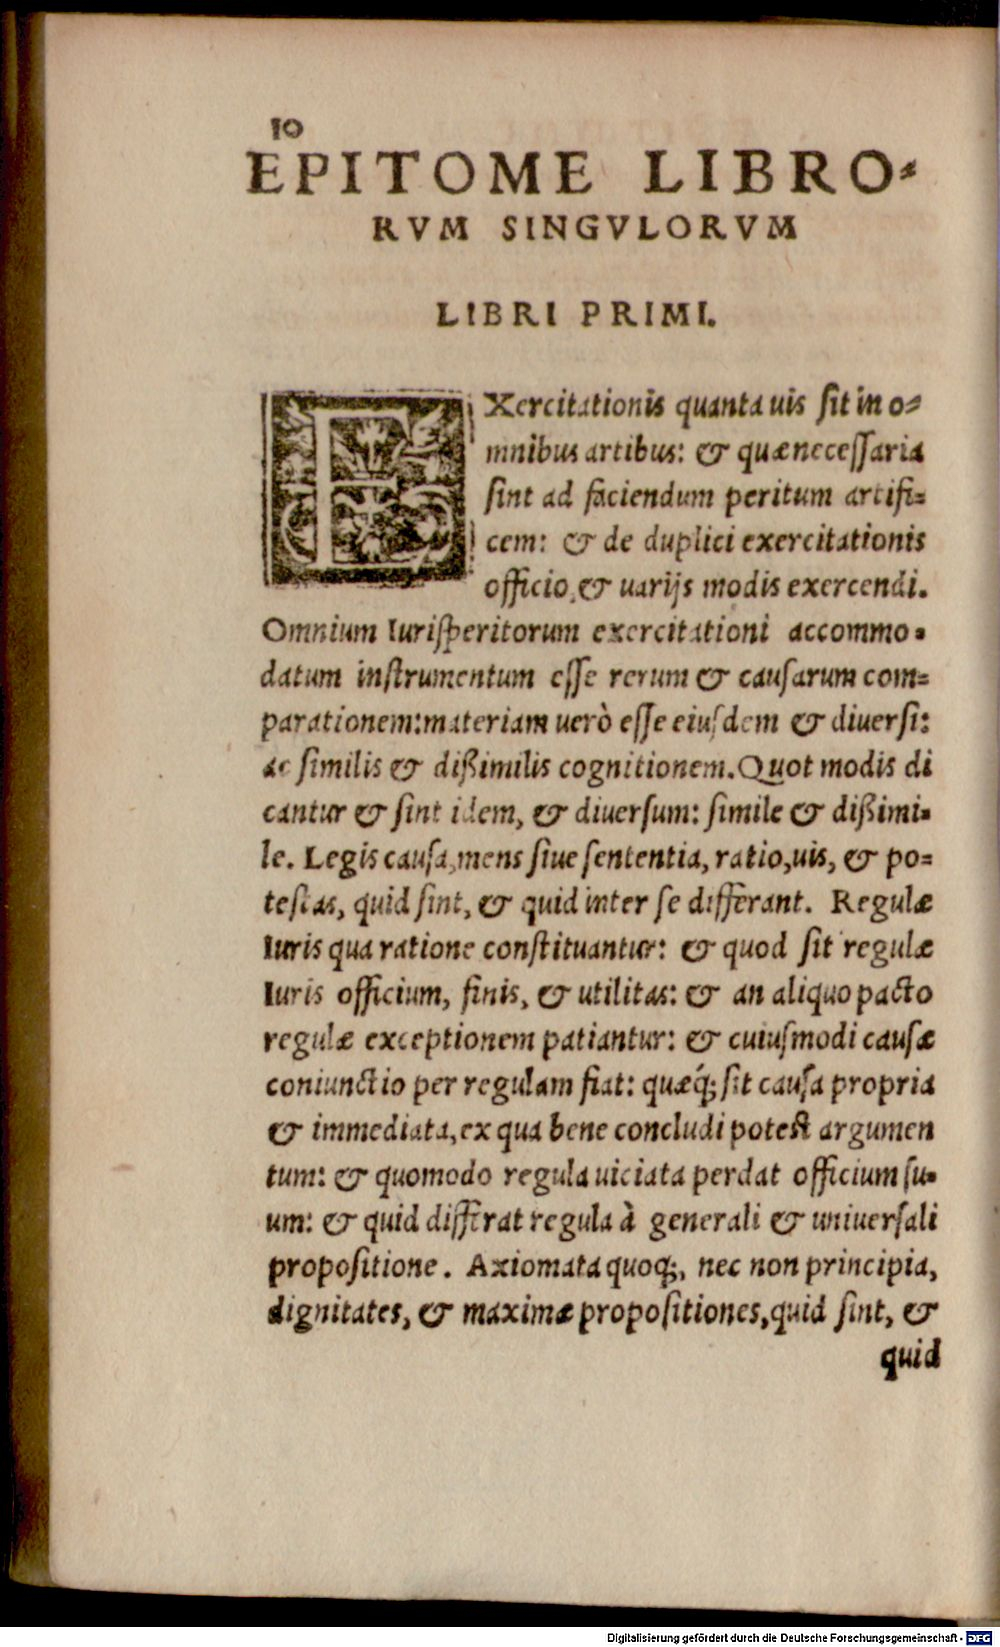 10
EPITOME LIBRO-
RVM SINGVLORVM
LIBRI PRIMI.
EXercitationis quanta uis ſit in o-
mnibus artibus: & quæ neceſſaria
ſint ad faciendum peritum artifi-
cem: & de duplici exercitationis
officio, & uarijs modis exercendi.
Omnium Iuriſperitorum exercitationi accommo-
datum inſtrumentum eſſe rerum & cauſarum com-
parationem: materiam uerò eſſe eiuſdem & diuerſi:
ac ſimilis & dißimilis cognitionem. Quot modis di
cantur & ſint idem, & diuerſum: ſimile & dißimi-
le. Legis cauſa, mens ſiue ſententia, ratio, uis, & po-
teſtas, quid ſint, & quid inter ſe differant. Regulæ
Iuris qua ratione conſtituantur: & quod ſit regulæ
Iuris officium, finis, & utilitas: & an aliquo pacto
regulæ exceptionem patiantur: & cuiuſmodi cauſæ
coniunctio per regulam fiat: quæq́; ſit cauſa propria
& immediata, ex qua bene concludi poteſt argumen
tum: & quomodo regula uiciata perdat officium ſu-
um: & quid differat regula à generali & uniuerſali
propoſitione. Axiomata quoq;, nec non principia,
dignitates, & maximæ propoſitiones, quid ſint, &
quid
Digitalisierung gefördert durch die Deutsche Forschungsgemeinschaft - DFG